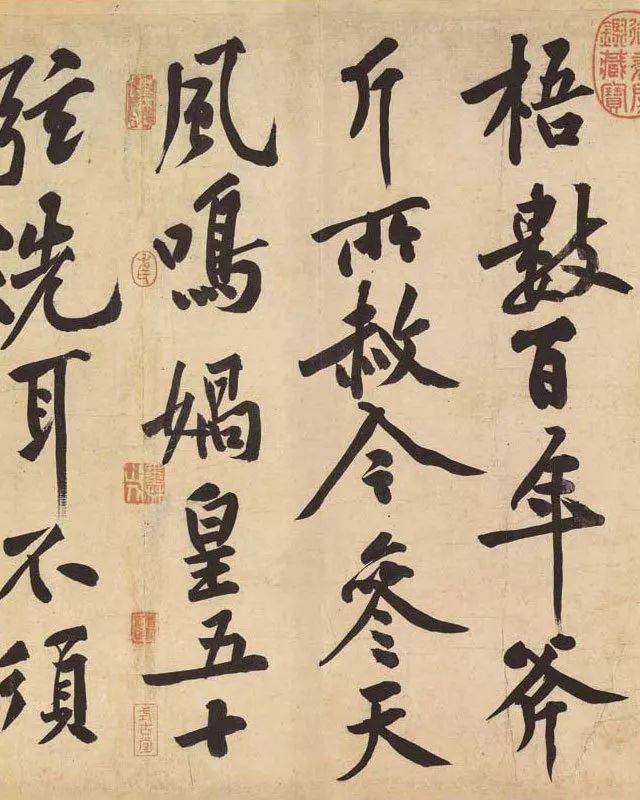 梧數百年斧
斤所赦令參天
風鳴媧皇五十
弦洗耳不須